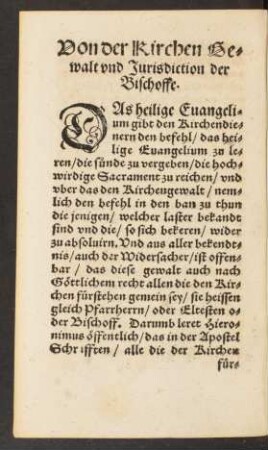 Von der Kirchen Ge-
walt vnd Jurisdiction der
Bischoffe.
DAs heilige Euangeli-
um gibt den Kirchendie-
nern den befehl / das hei-
lige Euangelium zu le-
ren / die sünde zu vergeben / die hoch-
wirdige Sacrament zu reichen / vnd
vber das den Kirchengewalt / nem-
lich den befehl in den ban zu thun
die jenigen / welcher laster bekandt
sind vnd die / so sich bekeren / wider
zu absoluirn. Vnd aus aller bekendt-
nis / auch der Widersacher / ist offen-
bar / das diese gewalt auch nach
Göttlichem recht allen die den Kir-
chen fürstehen gemein sey / sie heissen
gleich Pfarrherrn / oder Eltesten o-
der Bischoff. Darumb leret Hiero-
nimus öffentlich / das in der Apostel
Schrifften / alle die der Kirchen
für-